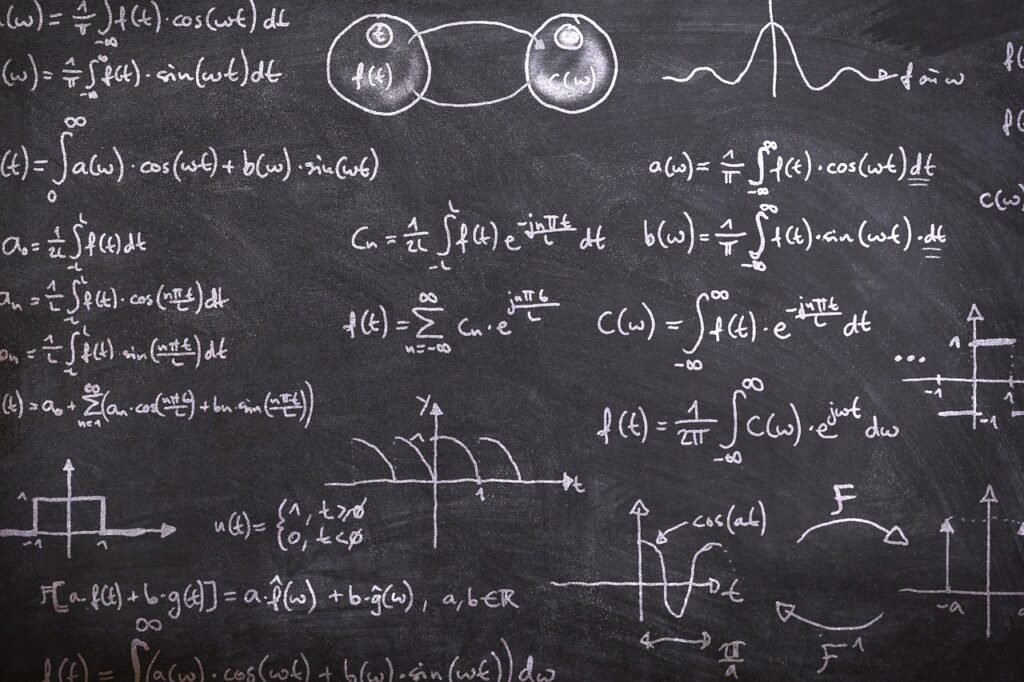 a(ω) = 1/π ∫_{-∞} f(t)·cos(ωt) dt
(ω) = 1/π ∫_{-∞}^{∞} f(t)·sin(ωt) dt
t
f(t)
c(ω)
f(t)
f(t)
(t) = ∫_0^∞ a(ω)·cos(ωt) + b(ω)·sin(ωt)
a(ω) = 1/π ∫_{-∞}^{∞} f(t)·cos(ωt) dt
c(ω)
a₀ = 1/2L ∫_{-L}^{L} f(t) dt
Cn = 1/2L ∫_{-L}^{L} f(t) e^{-jnπt/L} dt
b(ω) = 1/π ∫_{-∞}^{∞} f(t)·sin(ωt)·dt
an = 1/L ∫_{-L}^{L} f(t)·cos(nπt/L) dt
f(t) = Σ_{n=-∞}^{∞} Cn·e^{jnπt/L}
C(ω) = ∫_{-∞}^{∞} f(t)·e^{-jnπt/L} dt
bn = 1/L ∫_{-L}^{L} f(t)·sin(nπt/L) dt
...
1
-1
1
-1
(t) = a₀ + Σ_{n=1}^{∞} (an·cos(nπt/L) + bn·sin(nπt/L))
f(t) = 1/2π ∫_{-∞}^{∞} C(ω)·e^{jωt} dω
y
1
1
t
1
-1
1
u(t) = {1, t≥0
0, t<0
cos(at)
t
π/a
F
F⁻¹
-a
F[a·f(t) + b·g(t)] = a·f̂(ω) + b·ĝ(ω), a,b∈ℝ
f(t) = ∫^∞ (a(ω)·cos(ωt) + b(ω)·sin(ωt)) dω